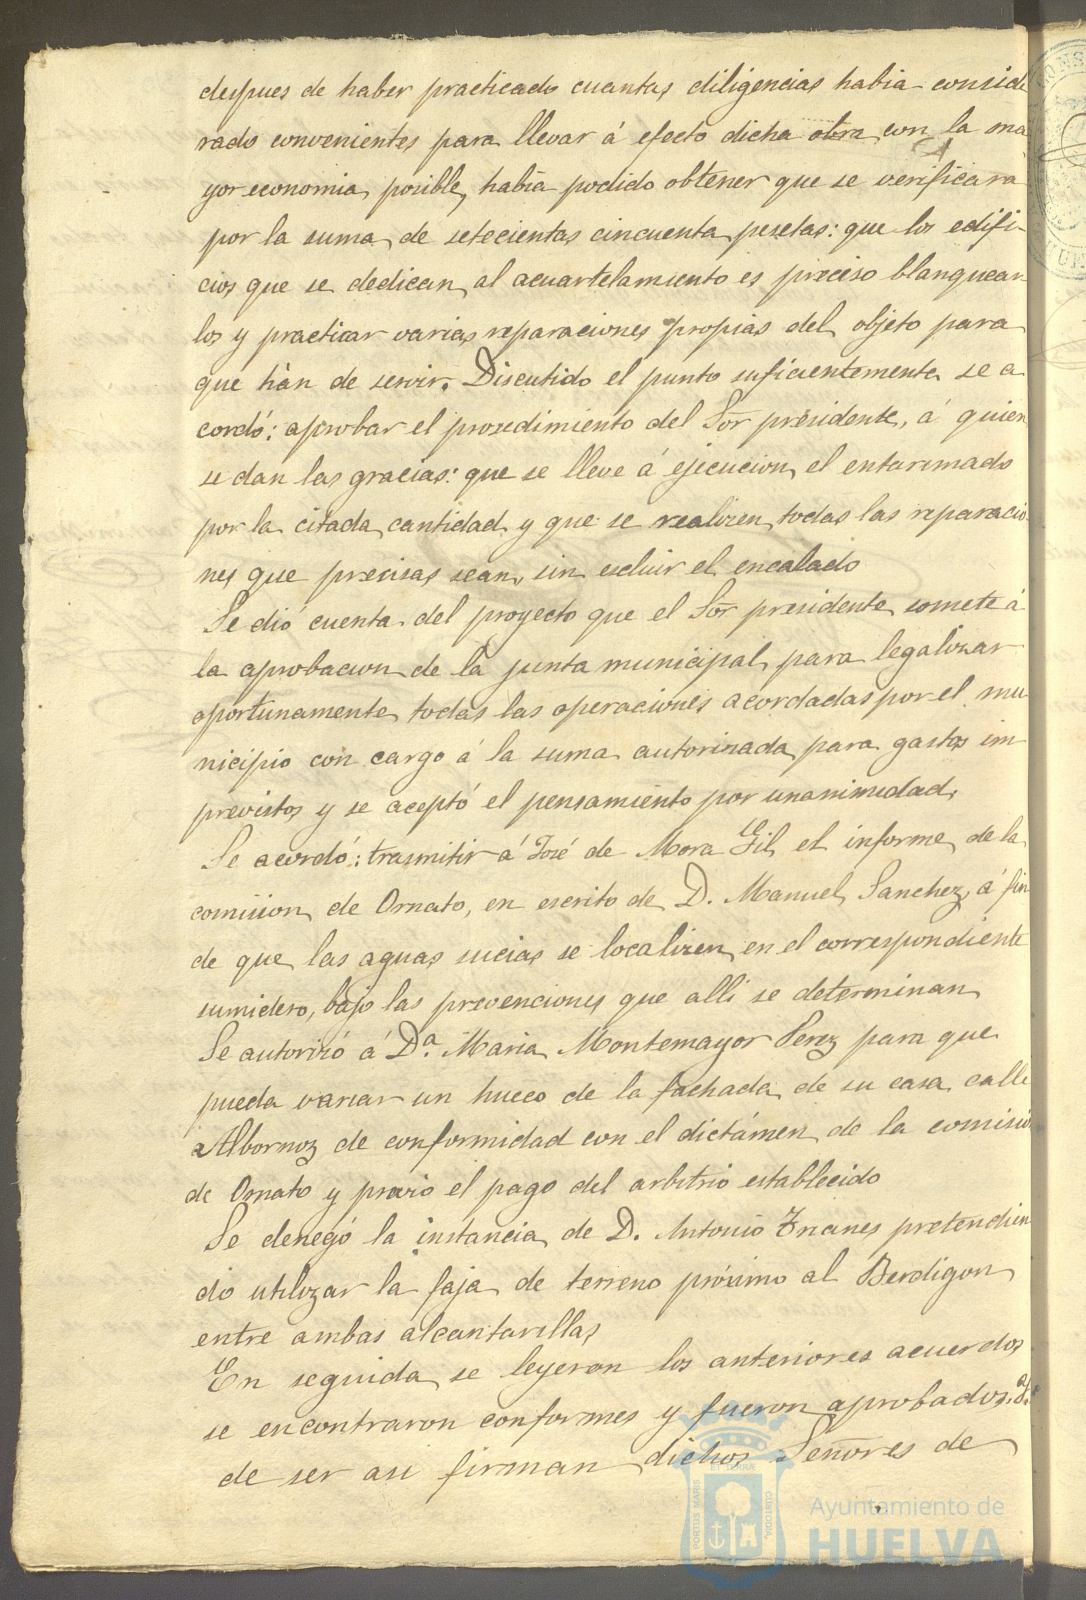 despues de haber practicado cuantas diligencias habia conside
rado convenientes para llevar á efecto dicha obra con la ma
yor economia posible, habia podido obtener que se verificara
por la suma de setecientas cincuenta pesetas: que los edifi-
cios que se dedican al acuartelamiento es preciso blanquear
los y practicar varias reparaciones propias del objeto para
que han de servir. Discutido el punto suficientemente se a
cordó: aprobar el prosedimiento del Sor presidente, á quien
se dan las gracias: que se lleve á ejecucion el entarimado
por la citada cantidad y que se realizen todas las reparacio
nes que precisas sean, sin escluir el encalado
Se dió cuenta del proyecto que el Sor presidente somete á
la aprobacion de la junta municipal para legalizar
oportunamente todas las operaciones acordadas por el mu
nicipio con cargo á la suma autorizada para gastos im
previstos y se aceptó el pensamiento por unanimidad.
Se acordó: trasmitir á José de Mora Gil el informe de la
comision de Ornato, en escrito de D. Manuel Sanchez, á fin
de que las aguas sucias se localizen en el correspondiente
sumidero, bajo las prevenciones que alli se determinan
Se autorizó á Da. Maria Montemayor Perez para que
pueda variar un hueco de la fachada de su casa calle
Albornoz de conformidad con el dictámen de la comisio
de Ornato y previo el pago del arbitrio establecido
Se denegó la instancia de D. Antonio Trianes pretendien
do utilizar la faja de terreno próximo al Berdigon
entre ambas alcantarillas
En seguida se leyeron los anteriores acuerdos
se encontraron conformes y fueron aprobados.
de ser asi firman dichos Señores de
PORTUS MARIS
CUSTODIA
Ayuntamiento de
HUELVA